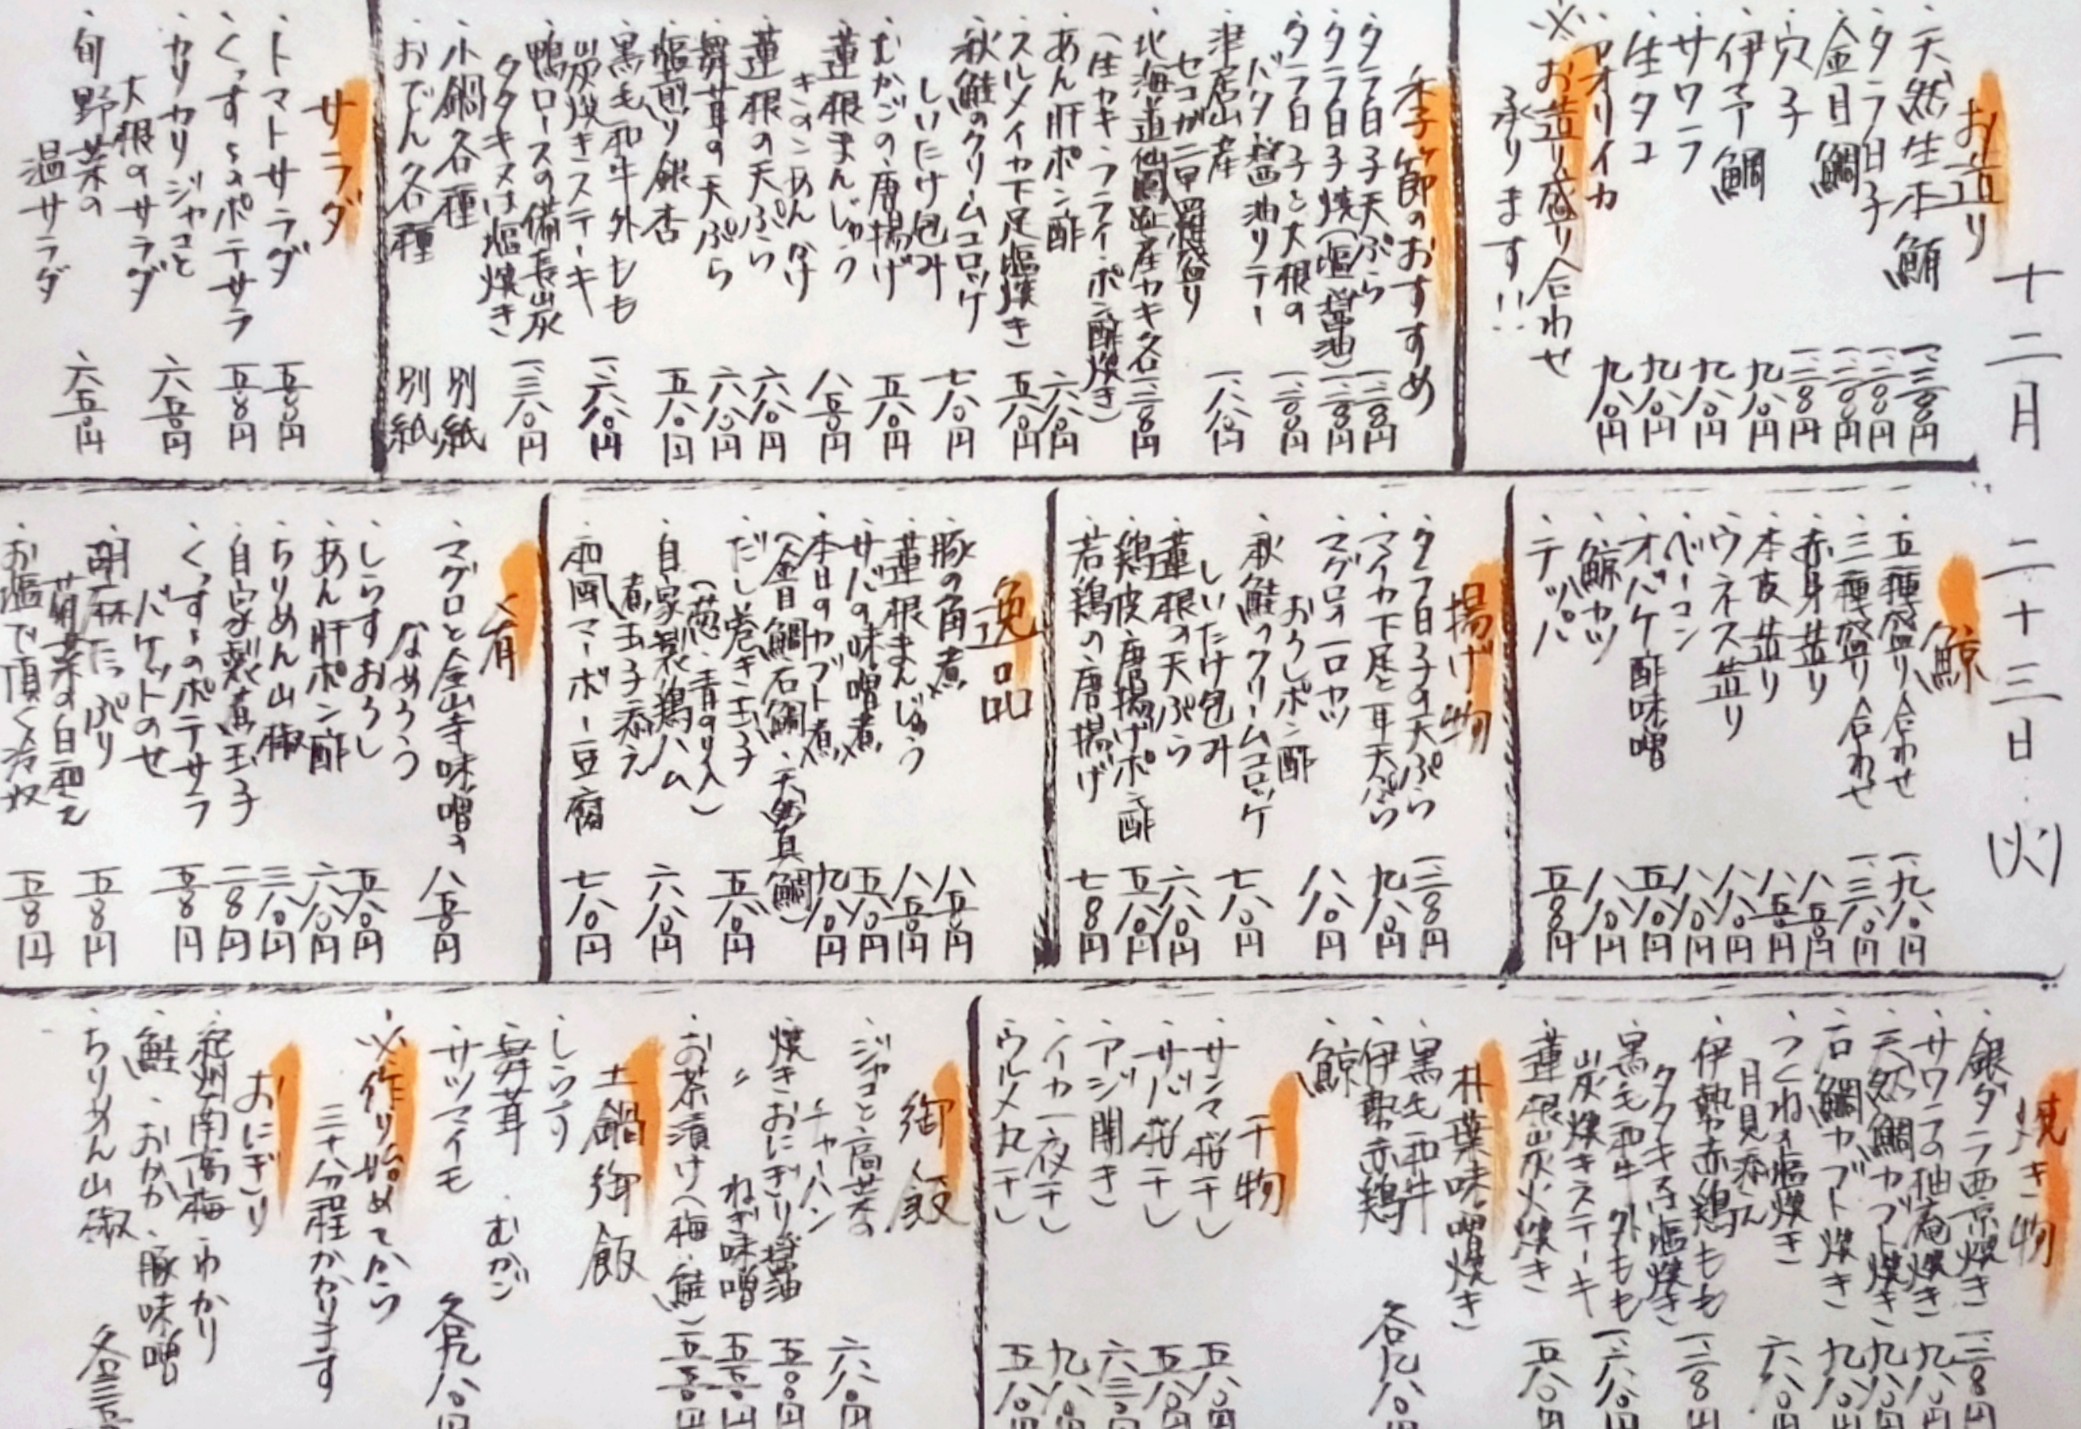 十二月 二十三日 (火)
お造り
・天然生本鮪 一、三〇〇円
・タラ白子 一、二〇〇円
・金目鯛 一、二〇〇円
・穴子 一、二〇〇円
・伊予鯛 九八〇円
・サワラ 九八〇円
・生タコ 九八〇円
・アオリイカ 九八〇円
※お造り盛り合わせ
承ります!!
季節のおすすめ
・タラ白子天ぷら 一、二〇〇円
・タラ白子焼(塩・醤油) 一、二〇〇円
・タラ白子と大根の
バター醤油ソテー 一、二〇〇円
・津居山産
セコガニ甲羅盛り 一、八〇〇円
・北海道仙鳳趾産カキ各一、二〇〇円
(生カキ・フライ・ポン酢・焼き)
・あん肝ポン酢 六八〇円
・スルメイカ下足塩焼き 五八〇円
・秋鮭のクリームコロッケ
しいたけ包み 七八〇円
・むかごの唐揚げ 五八〇円
・蓮根まんじゅう
きのこあんかけ 八五〇円
・蓮根の天ぷら 六八〇円
・舞茸の天ぷら 六八〇円
・塩煎り銀杏 五八〇円
・黒毛和牛外もも
炭焼きステーキ 一、六八〇円
・鴨ロースの備長炭
タタキ又は塩焼き 一、三八〇円
・小鍋各種 別紙
・おでん各種 別紙
サラダ
・トマトサラダ 五五〇円
・くっすんポテサラ 五五〇円
・カリカリジャコと
大根のサラダ 六五〇円
・旬野菜の
温サラダ 六五〇円
鯨
・五種盛り合わせ 一、九八〇円
・三種盛り合わせ 一、三八〇円
・赤身造り 八五〇円
・本皮造り 八五〇円
・ウネス造り 八八〇円
・ベーコン 八八〇円
・オバケ酢味噌 五八〇円
・鯨カツ 八八〇円
・テッパ 五五〇円
揚げ物
・タラ白子の天ぷら 一、二〇〇円
・マイカ下足と耳天ぷら 九八〇円
・マグロの一口カツ
おろしポン酢 八八〇円
・秋鮭のクリームコロッケ
しいたけ包み 七八〇円
・蓮根の天ぷら 六八〇円
・鶏皮唐揚げポン酢 五八〇円
・若鶏の唐揚げ 七八〇円
逸品
・豚の角煮 八五〇円
・蓮根まんじゅう 八五〇円
・サバの味噌煮 五八〇円
・本日のカブト煮 九八〇円
(金目鯛・石鯛・天然真鯛)
・だし巻き玉子 五八〇円
(葱・青のり入)
・自家製鶏ハム
煮玉子添え 六八〇円
・和風マーボー豆腐 七八〇円
肴
・マグロと金山寺味噌の
なめろう 八五〇円
・しらすおろし 五八〇円
・あん肝ポン酢 六八〇円
・ちりめん山椒 三八〇円
・自家製煮玉子 二八〇円
・くっすんのポテサラ
バケットのせ 五五〇円
・胡麻たっぷり
菊菜の白和え 五五〇円
・お塩で頂く冷奴 五五〇円
焼き物
・銀ダラ西京焼き 一、二〇〇円
・サワラの柚庵焼き 九八〇円
・天然鯛カブト焼き 九八〇円
・石鯛カブト焼き 九八〇円
・つくねの塩焼き
月見添え 六八〇円
・伊勢赤鶏もも
タタキ又は塩焼き 一、二〇〇円
・黒毛和牛外もも
炭焼きステーキ 一、六八〇円
・蓮根炭火焼き 五八〇円
朴葉味噌焼き
・黒毛和牛
・伊勢赤鶏 各九八〇円
・鯨
干物
・サンマ桜干し 五八〇円
・サバ桜干し 五八〇円
・アジ開き 六三〇円
・イカ一夜干し 九八〇円
・ウルメ丸干し 五八〇円
御飯
・ジャコと高菜の
チャーハン 六八〇円
・焼きおにぎり醤油 五〇〇円
・〃 ねぎ味噌 五五〇円
・お茶漬け(梅・鮭) 五五〇円
土鍋御飯
・しらす
・舞茸 ・むかご
・サツマイモ 各九八〇円
※作り始めてから
三十分程かかります
おにぎり
・紀州南高梅・わかり
・鮭・おかか・豚味噌
・ちりめん山椒 各三五